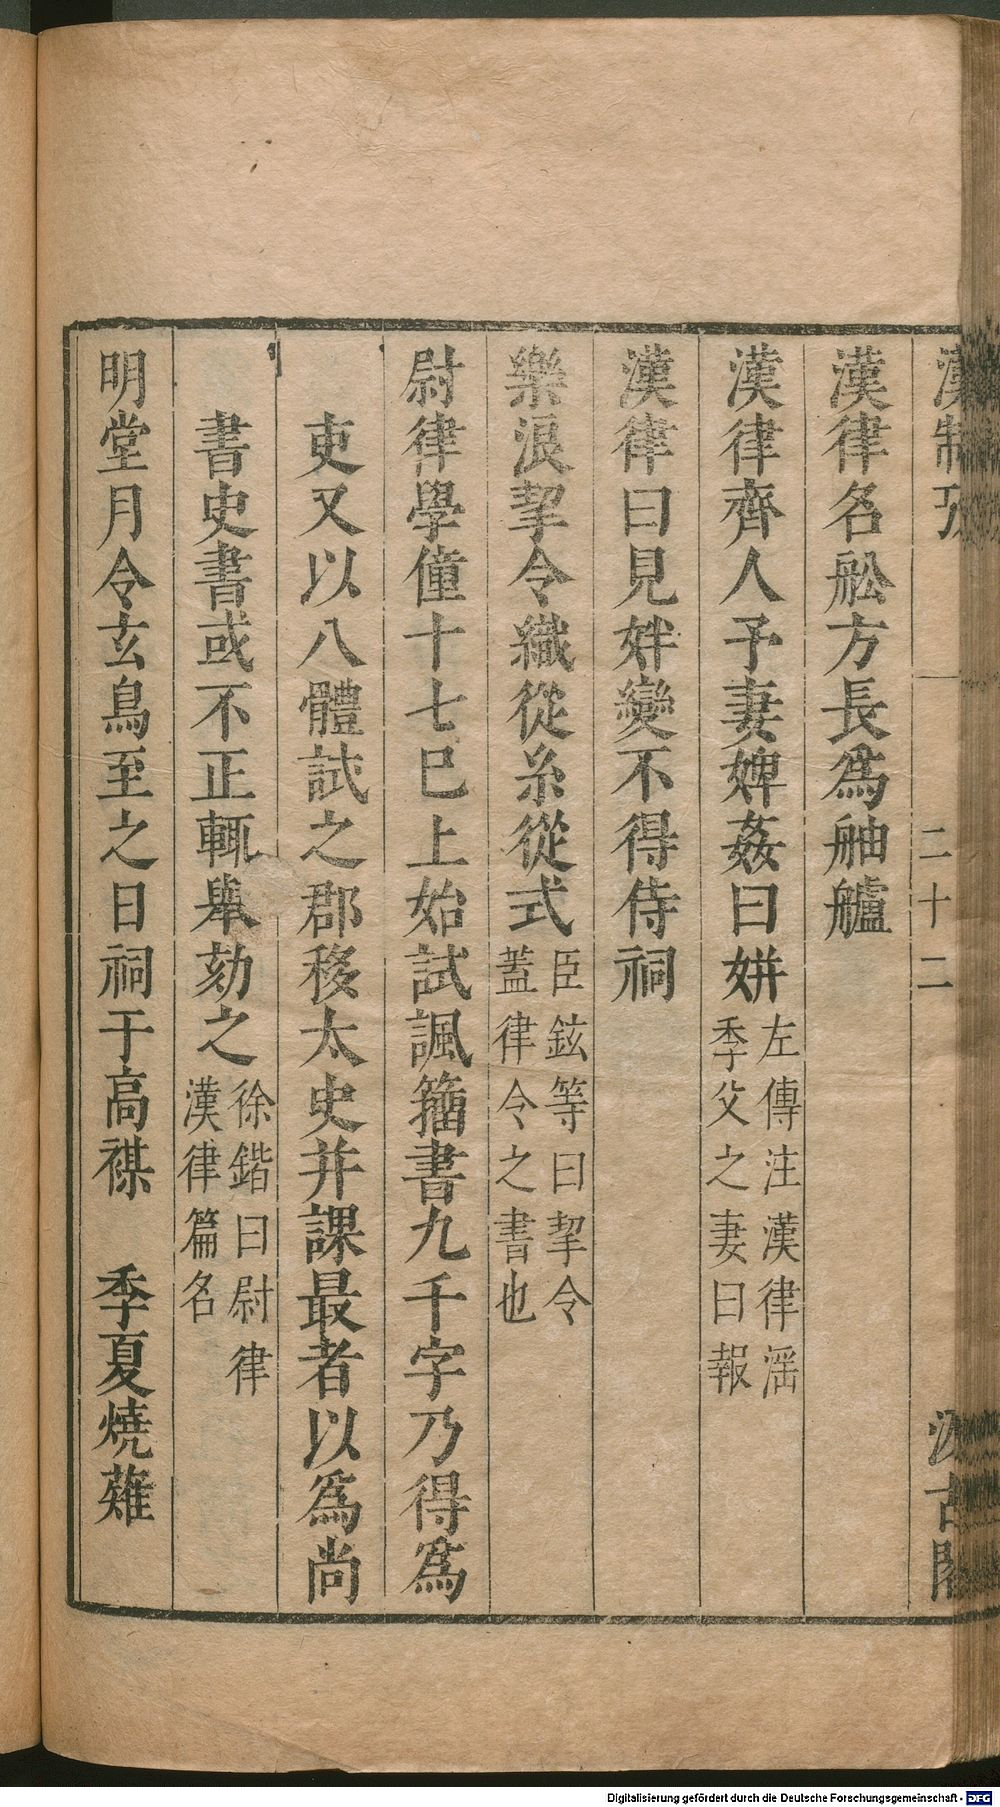 漢制攷
二十二
汲古閣
漢律名舩方長爲舳艫
漢律齊人予妻婢姦曰姘左傳注漢律滛
季父之妻曰報
漢律曰見姅變不得侍祠
樂浪挈令織從糸從式臣鉉等曰挈令
蓋律令之書也
尉律學僮十七巳上始試諷籀書九千字乃得爲
吏又以八體試之郡移太史并課最者以爲尚
書史書或不正輒舉劾之徐鍇曰尉律
漢律篇名
明堂月令玄鳥至之日祠于高禖 季夏燒薙
Digitalisierung gefördert durch die Deutsche Forschungsgemeinschaft - DFG